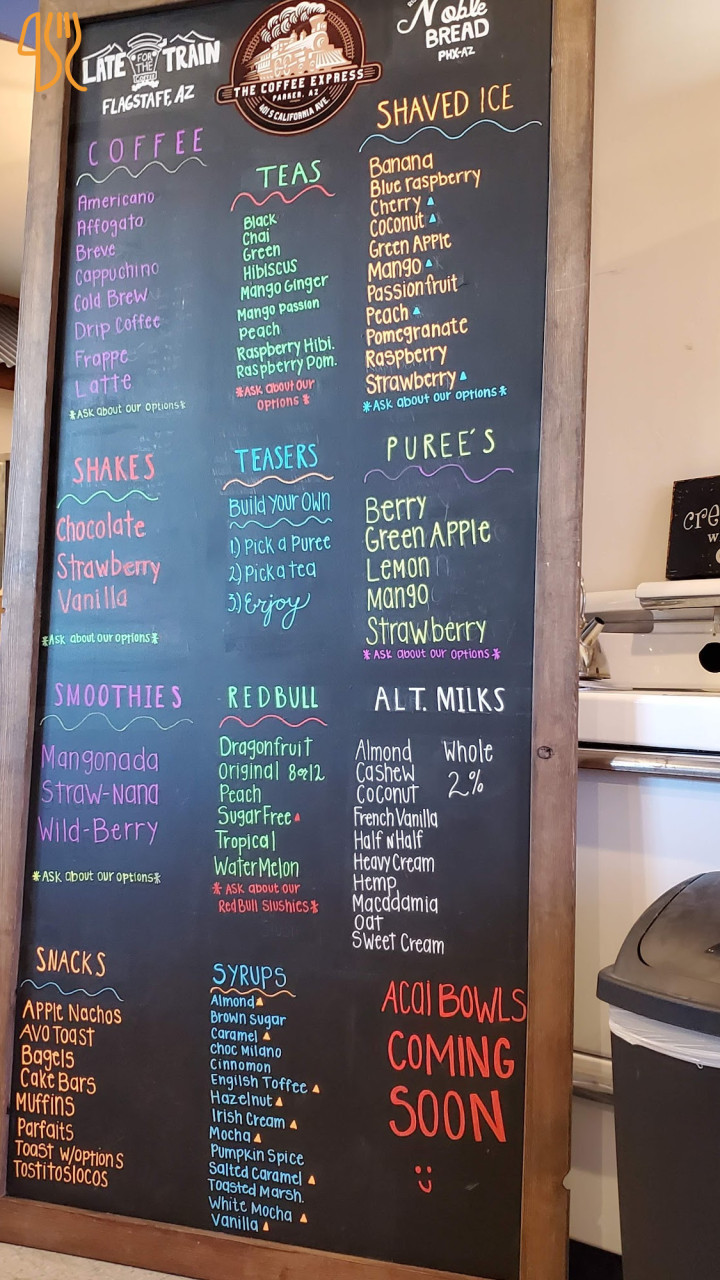 LATE FOR THE TRAIN
FLAGSTAFF, AZ
THE COFFEE EXPRESS
PARKER, AZ
401 S CALIFORNIA AVE.
Noble
BREAD
PHX-AZ
COFFEE
Americano
Affogato
Breve
Cappuchino
Cold Brew
Drip Coffee
Frappe
Latte
*Ask about our options*
TEAS
Black
Chai
Green
Hibiscus
Mango Ginger
Mango Passion
Peach
Raspberry Hibi.
Raspberry Pom.
*Ask about our
options*
SHAVED ICE
Banana
Blue raspberry
Cherry
Coconut
Green Apple
Mango
Passionfruit
Peach
Pomegranate
Raspberry
Strawberry
*Ask about our options*
SHAKES
Chocolate
Strawberry
Vanilla
*Ask about our options*
TEASERS
Build Your Own
1) Pick a Puree
2) Pick a tea
3) Enjoy
PUREE'S
Berry
Green Apple
Lemon
Mango
Strawberry
*Ask about our options*
SMOOTHIES
Mangonada
Straw-Nana
Wild-Berry
*Ask about our options*
REDBULL
Dragonfruit
Original 8or12
Peach
Sugar Free
Tropical
WaterMelon
* Ask about our
Red Bull Slushies*
ALT. MILKS
Almond
Cashew
Coconut
French Vanilla
Half N Half
Heavy Cream
Hemp
Macadamia
Oat
Sweet Cream
Whole
2%
SNACKS
Apple Nachos
AVO Toast
Bagels
Cake Bars
Muffins
Parfaits
Toast w/options
Tostitoslocos
SYRUPS
Almond
Brown Sugar
Caramel
Choc Milano
Cinnomon
English Toffee
Hazelnut
Irish Cream
Mocha
Pumpkin Spice
Salted Caramel
Toasted Marsh.
White Mocha
Vanilla
ACAI BOWLS
COMING
SOON
cre
w